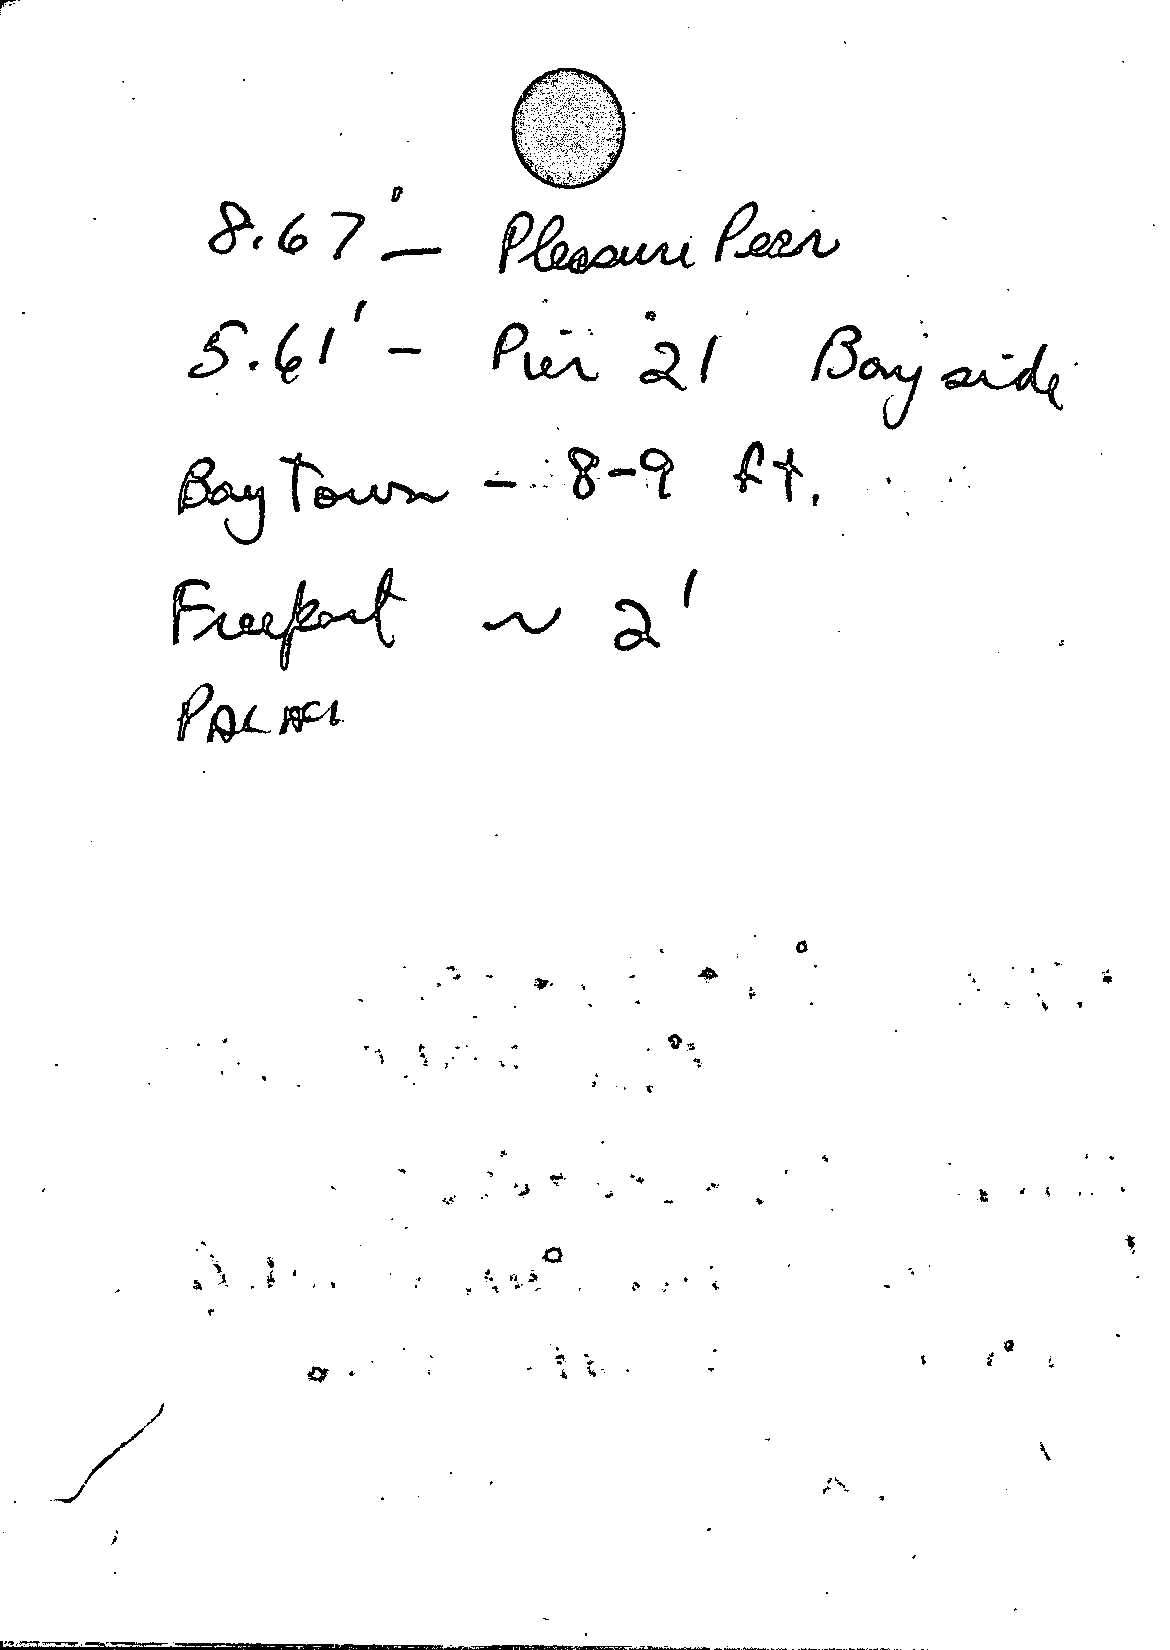 8.67' – Pleasure Peer
5.61' – Pier 21 Bayside
Baytown – 8-9 ft.
Freeport ~ 2'